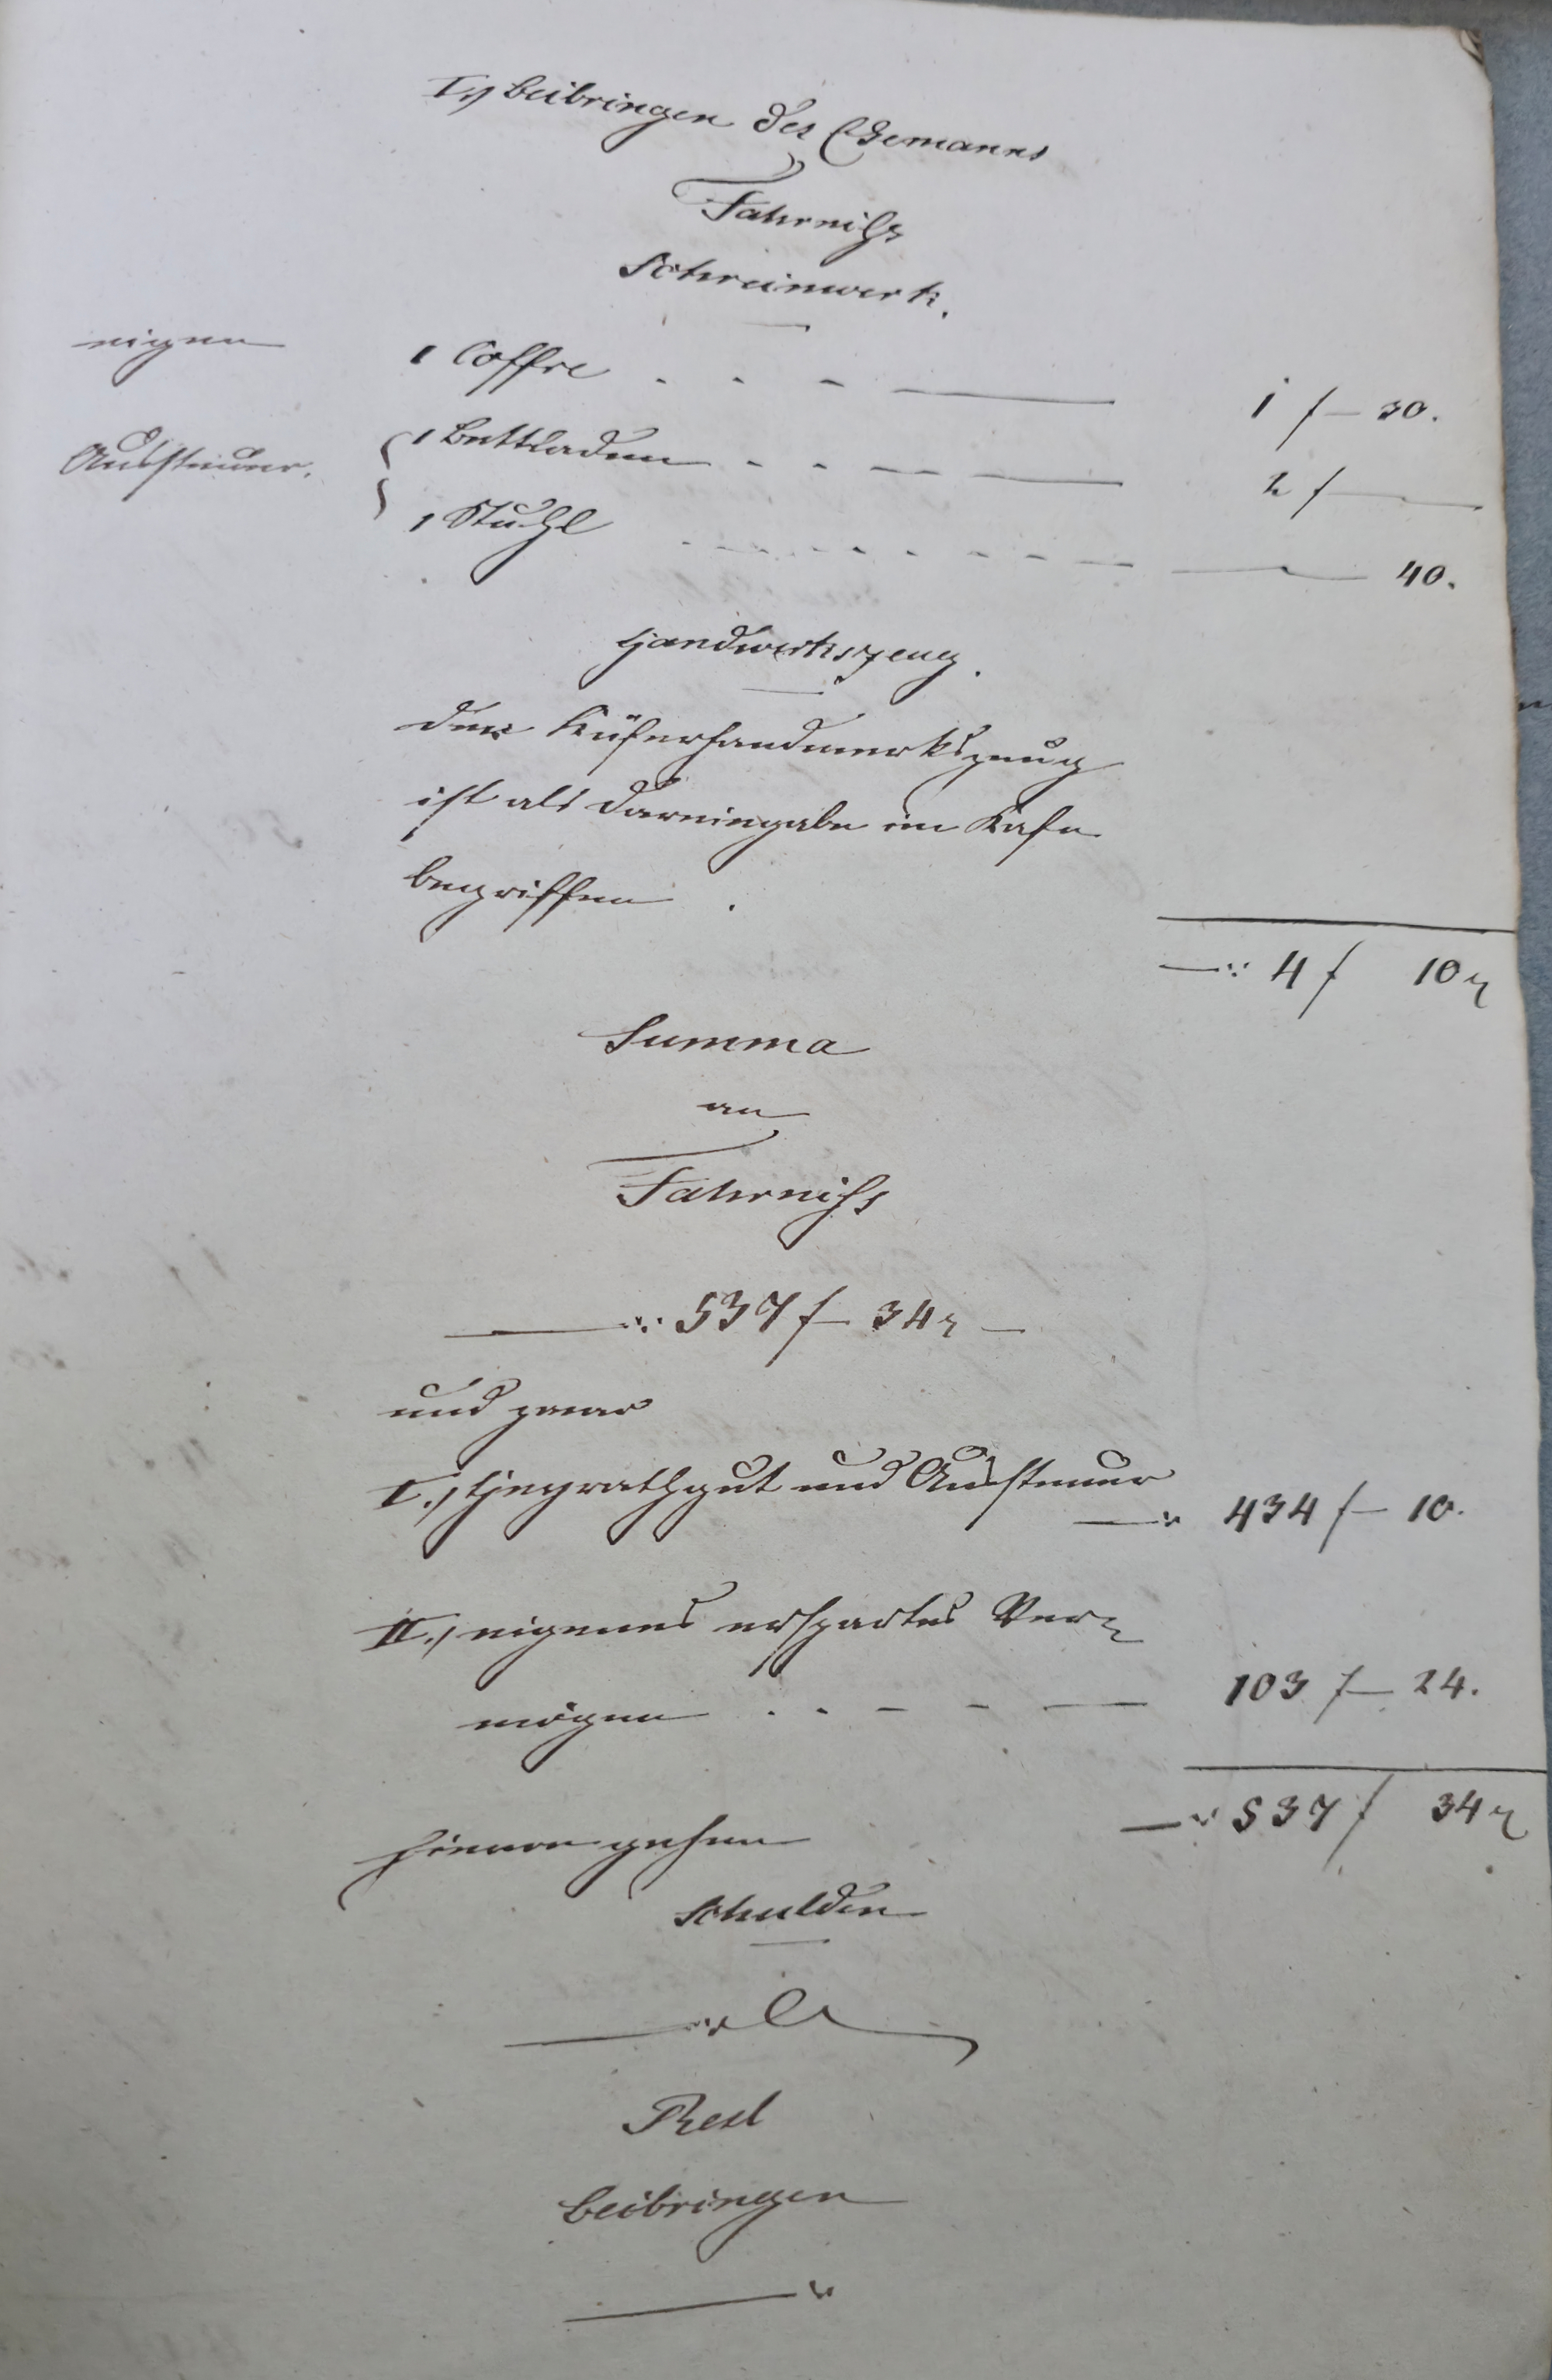 I., Beibringen des Ehemanns
Fahrniß
Schreinwerk.
eigen 1 Coffre . . - 1 f 30.
Aussteuer. 1 Bettladen . . - 2 f
1 Stuhl 40.
Handwerkszeug.
Der Küferhandwerkszeug
ist als Dareingabe im Kafe
begriffen .
4 f 10 x
Summa
an
Fahrniß
537 f 34 x
und zwar
I., Heyrathgut und Aussteuer
434 f 10.
II., eigenes erspartes Ver-
mögen . . - - 103 f 24.
537 f 34 x
hievon gehen
Schulden
Rest
Beibringen